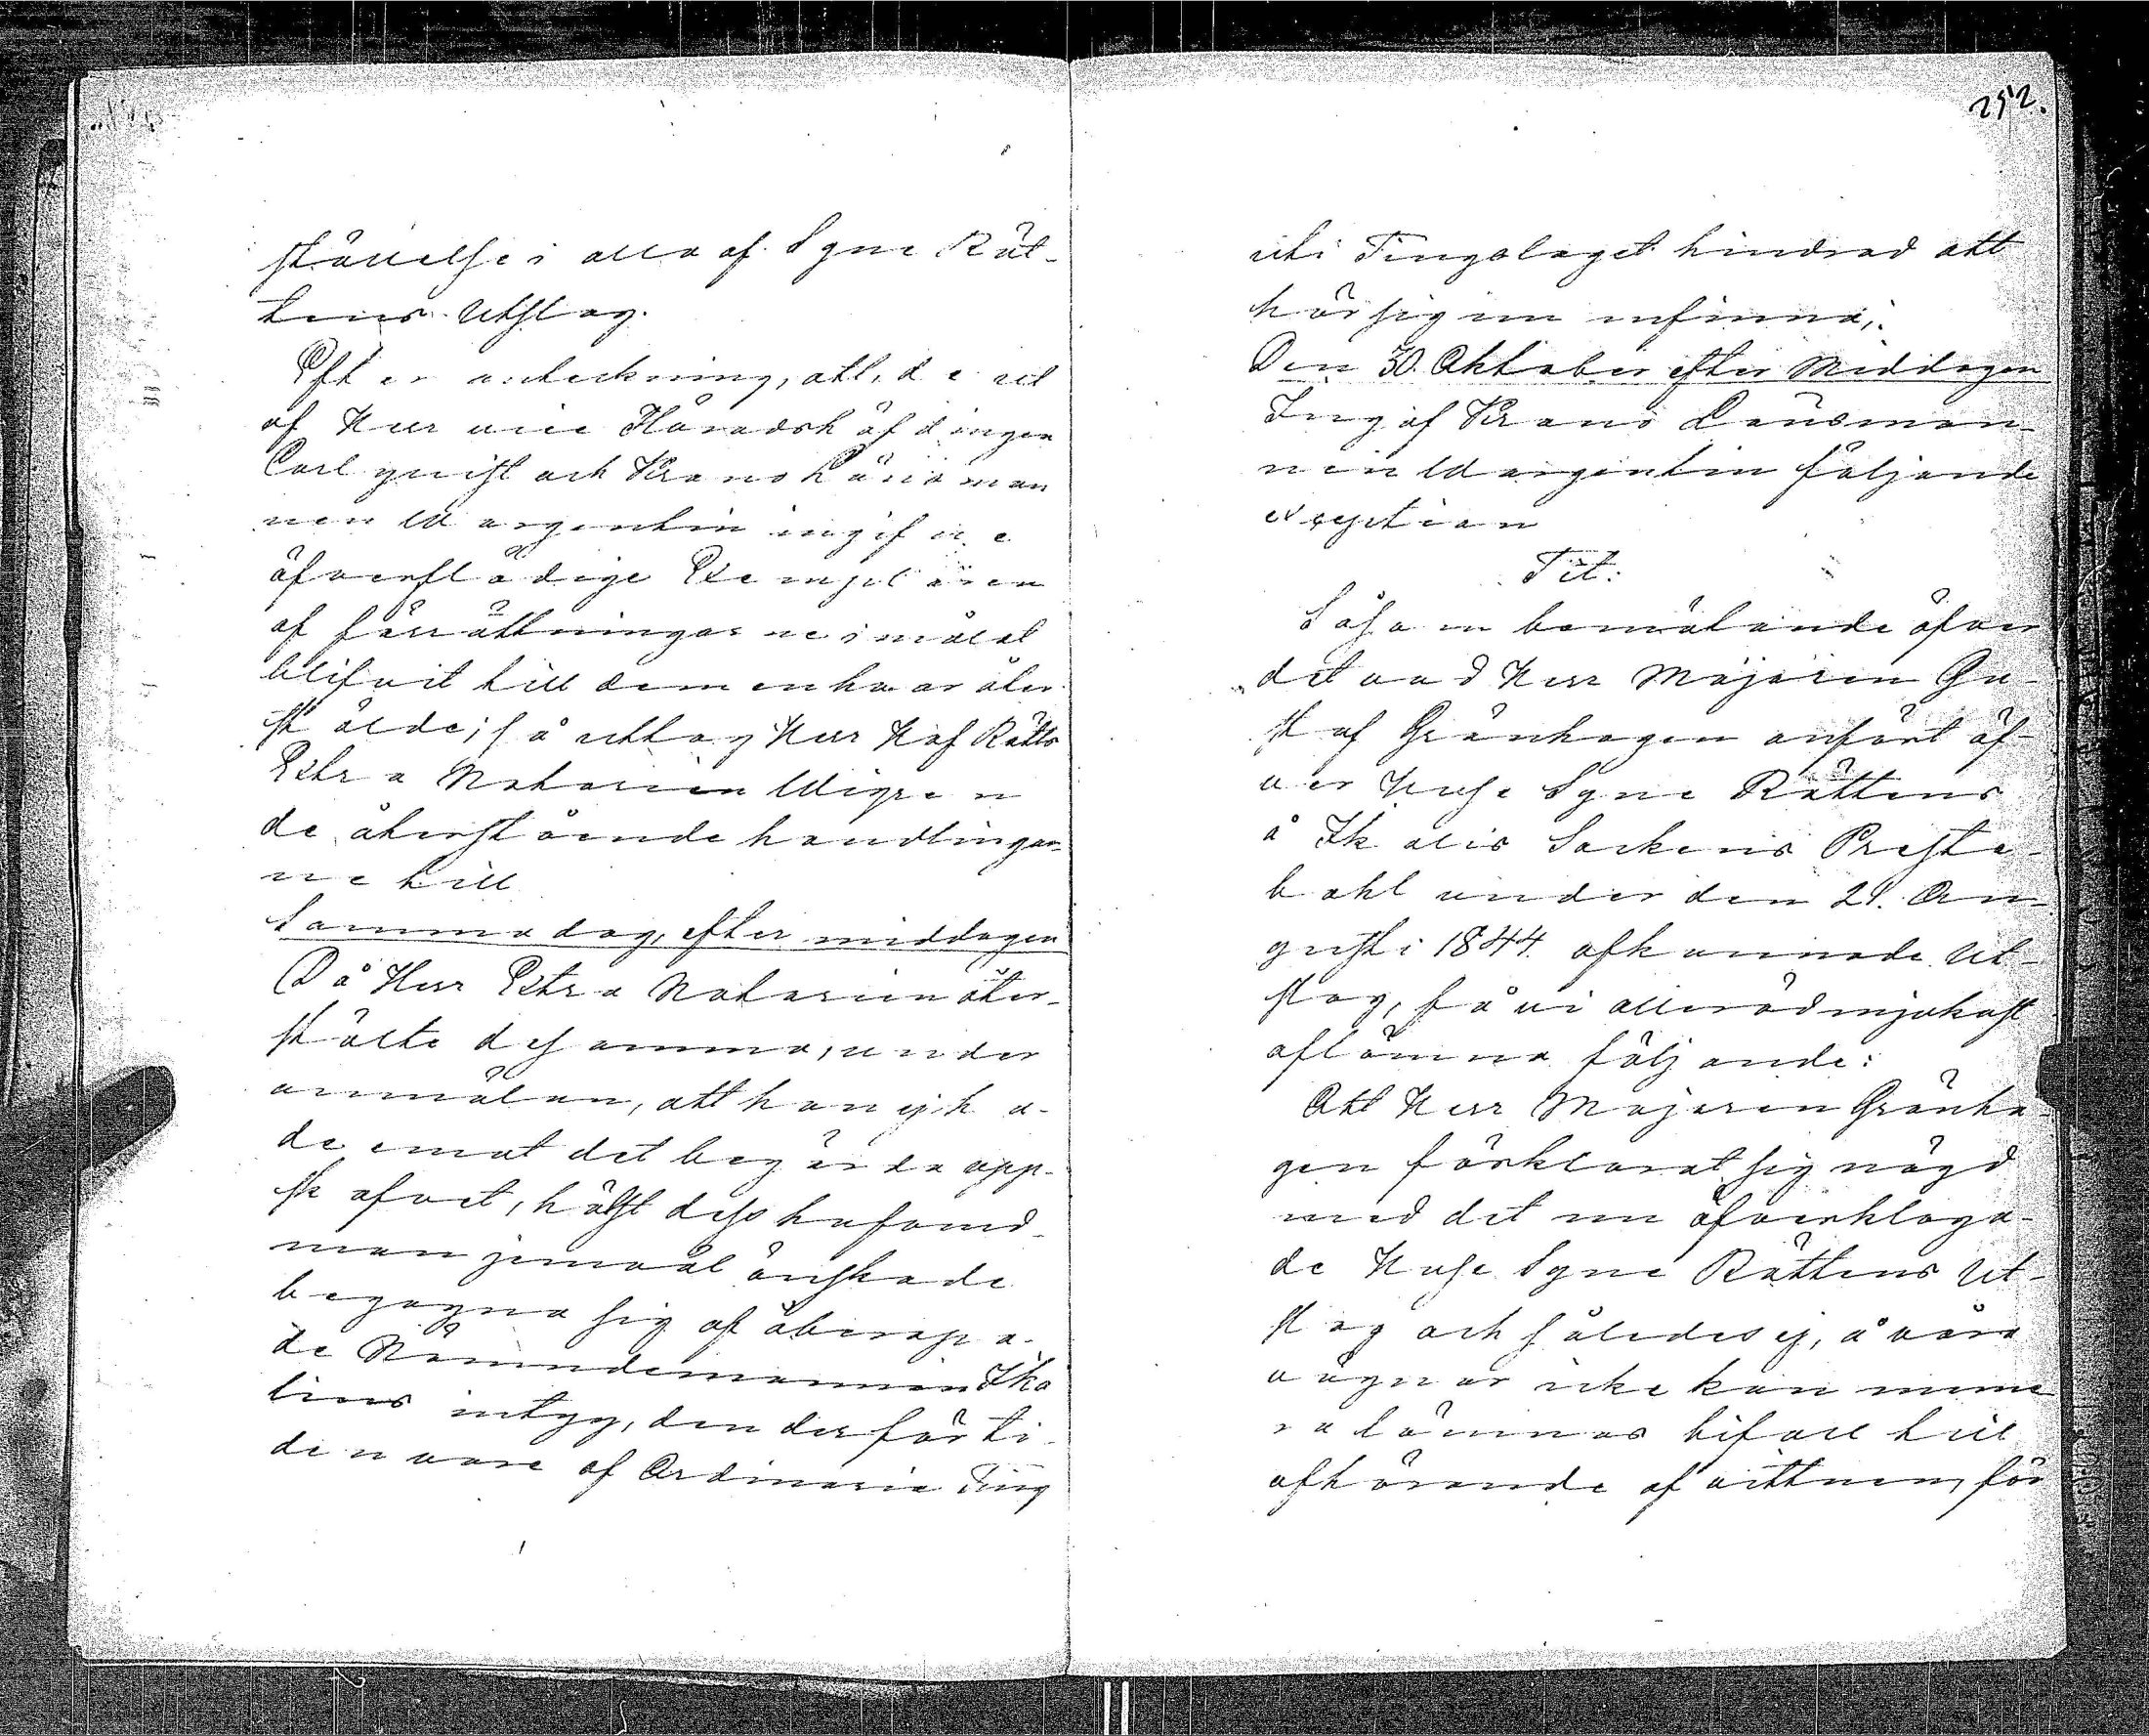 ställelse i alla af Syne Rät-
tens Utslag.
Efter anteckning, att, de ut
af Herr vice Häradshöfdingen
Carlquist och Kronolänsman
nen Wargentin ingifne
öfverflödige Exemplaren
af förrättningarne i målet
blifvit till dem enhvar åter-
stälde; så uttog Herr Hof Rätts
Extra Notarien Wigren
de återstående handlingar-
ne till
Samma dag, efter middagen
Då Herr Extra Notarien åter-
stälte desamma, under
anmälan, att han ej ha-
de emot det begärda upp-
skofvet, hälst dess hufvud-
man jemväl önskade
begagna sig af åberopa-
de Nämndemannen Ika
lins intyg, den der för ti-
den vore af Ordinarie Ting
252.
uti Tingslaget hindrad att
här sig nu infinna;
Den 30. Oktober efter Middagen
Ing af Krono Länsman-
nen Wargentin följande
exception
Tit:
Såsom bemötande öfver
det vad Herr Majoren Gu-
staf Grönhagen anfört öf-
ver Huse Syne Rättens
å Ikalis Sockens Preste-
bohl under den 21. Au-
gusti 1844. afkunnade Ut-
slag, få vi allerödmjukast
aflämna följande:
Att Herr Majoren Grönha-
gen förklarat sig nögd
med det nu öfverklaga-
de Huse Syne Rättens Ut-
slag och således ej, å våra
vägnar icke kan mera
ra lämnas bifall till
afhörande af vittnen, för